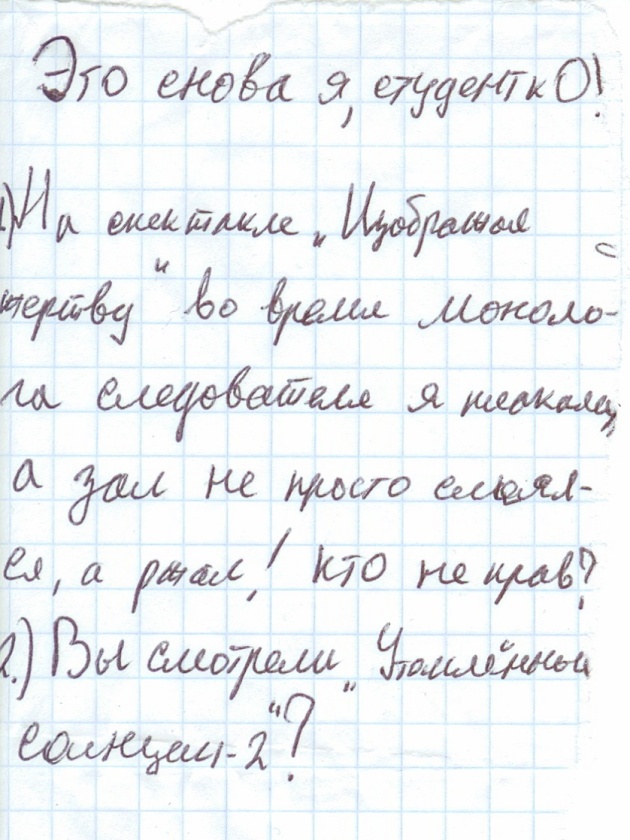 Это снова я, студенткО!
1) На спектакле „Изображая
жертву" во время моноло-
га следователя я плакала,
а зал не просто смеял-
ся, а ржал! Кто не прав?
2.) Вы смотрели „Утомлённые
солнцем-2"?